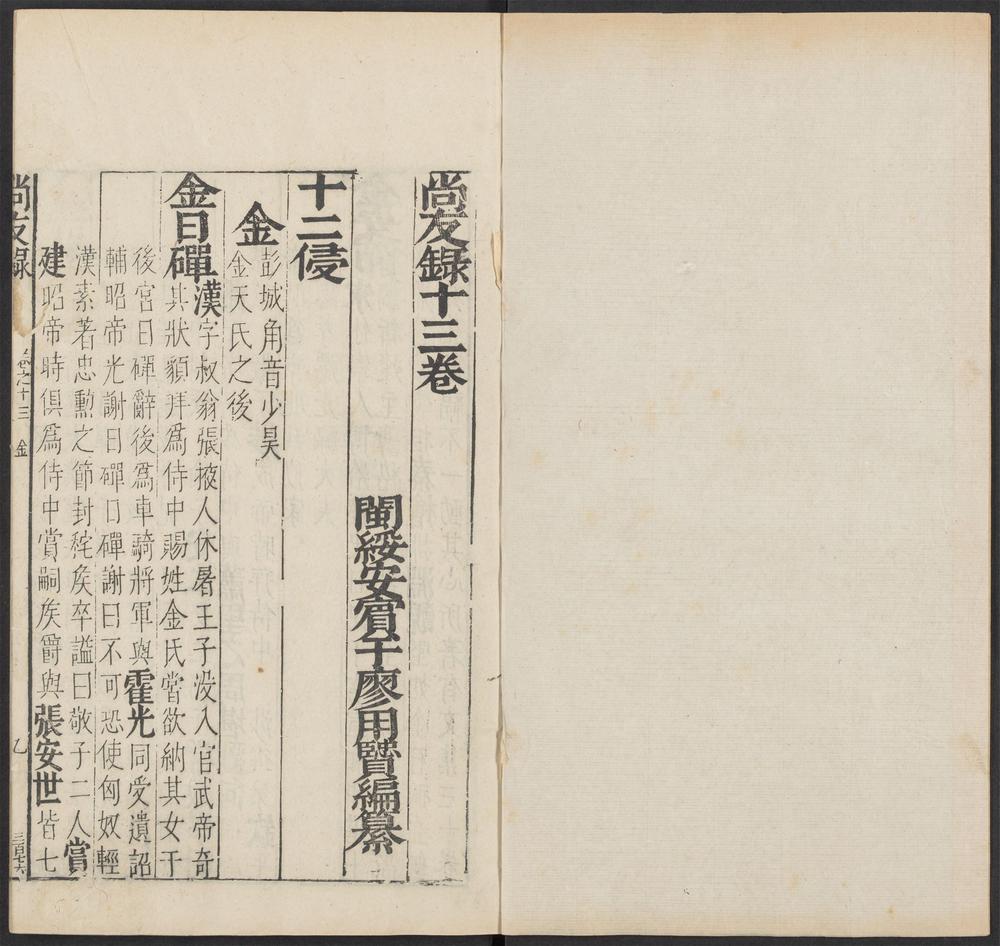 尚友錄十三卷
閩綏安賓于廖用賢編纂
十二侵
金
彭城角音少昊
金天氏之後
金日磾漢字叔翁張掖人休屠王子没入官武帝奇
其狀貌拜爲侍中賜姓金氏嘗欲納其女于
後宮日磾辭後爲車騎將軍與霍光同受遺詔
輔昭帝光謝日磾口磾謝曰不可恐使匈奴輕
漢素著忠勳之節封秺矦卒謚曰敬子二人賞
建昭帝時俱爲侍中賞嗣矦爵與張安世皆七
尚友錄 卷之十三 金 乙 三百七六